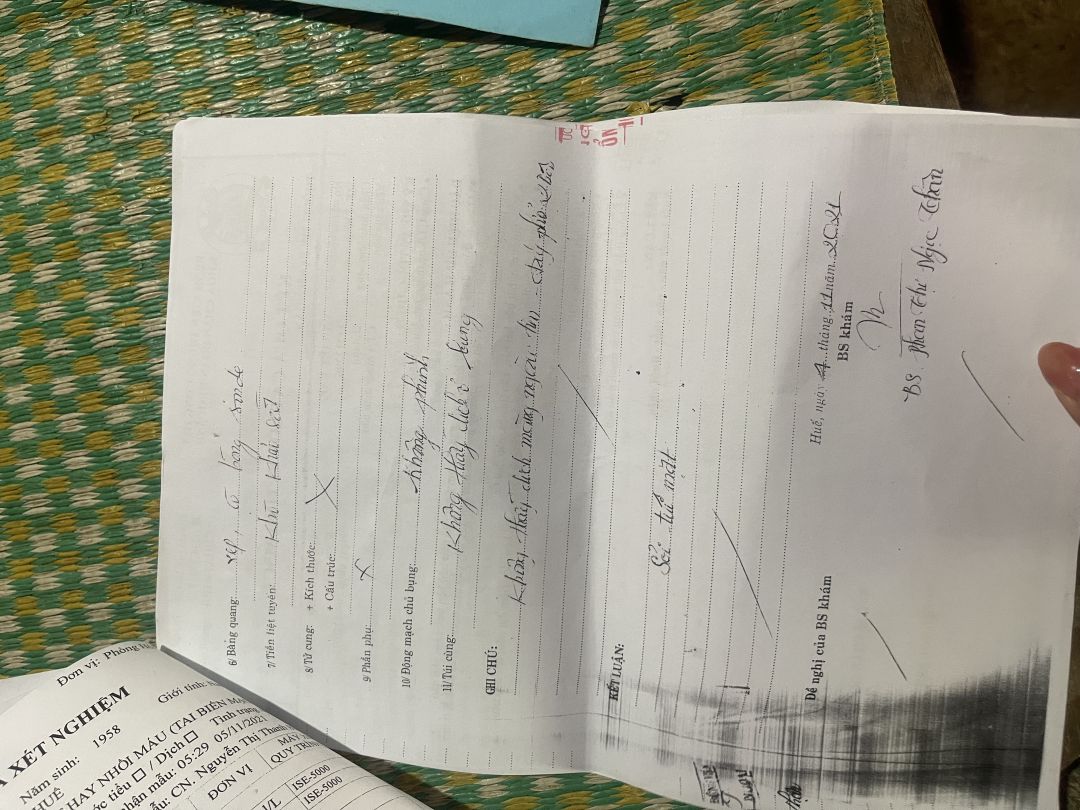 6/ Bàng quang: xẹp, có bóng sonde
7/ Tiền liệt tuyến: Khó khảo sát
8/ Tử cung: + Kích thước:
+ Cấu trúc: X
9/ Phần phụ: x
10/ Động mạch chủ bụng: không phình
11/ Túi cùng: Không thấy dịch ổ bụng
GHI CHÚ:
Không thấy dịch màng ngoài tim. đáy phổi 2 bên
KẾT LUẬN:
Sỏi túi mật
Đề nghị của BS khám
Huế, ngày 4 tháng 11 năm 2021
BS khám
BS. Phan Thị Ngọc Thần
Đơn vị: Phòng
XÉT NGHIỆM
Năm sinh: 1958
Giới tính:
HUẾ
HAY NHỒI MÁU (TAI BIẾN
/ Dịch Tình trạng
nhận mẫu: 05:29 05/11/2021
CN. Nguyễn Thị Thanh
ĐƠN VỊ
MÁY
QUY TRÌNH
ISE-5000
ISE-5000